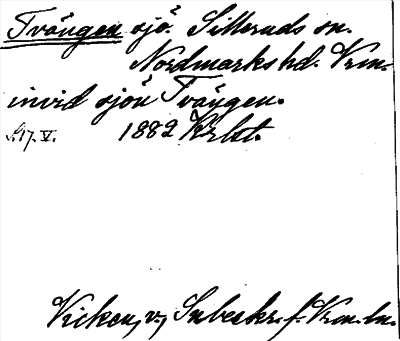 Tvängen sjö. Silleruds sn.
Nordmarks hd. Vrm.
invid sjön Tvängen.
S. 17. V. 1882 Krbt.
Vicken, v., Snbeskr. f. Vrm. ln.